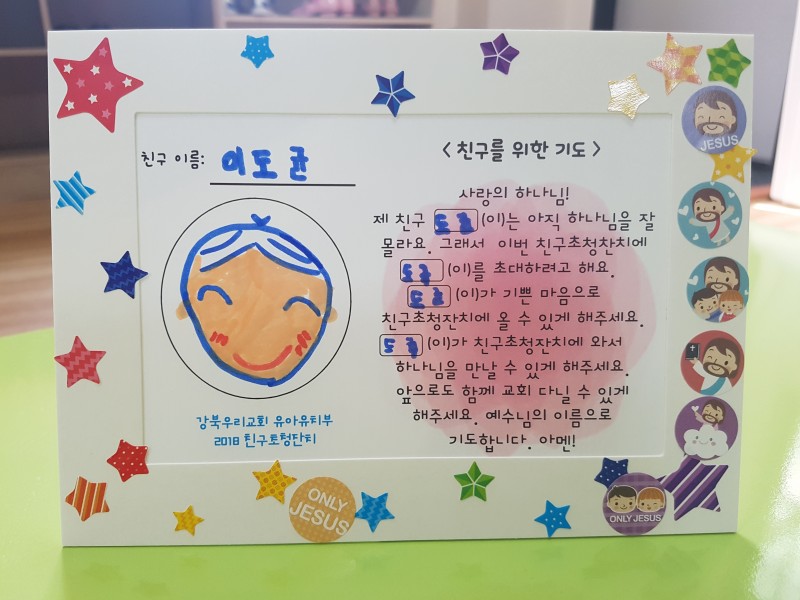 친구 이름: 이도균
강북우리교회 유아유치부
2018 친구초청잔치
< 친구를 위한 기도 >
사랑의 하나님!
제 친구 도균 (이)는 아직 하나님을 잘
몰라요. 그래서 이번 친구초청잔치에
도균 (이)를 초대하려고 해요.
도균 (이)가 기쁜 마음으로
친구초청잔치에 올 수 있게 해주세요.
도균 (이)가 친구초청잔치에 와서
하나님을 만날 수 있게 해주세요.
앞으로도 함께 교회 다닐 수 있게
해주세요. 예수님의 이름으로
기도합니다. 아멘!
JESUS
ONLY
JESUS
ONLY JESUS